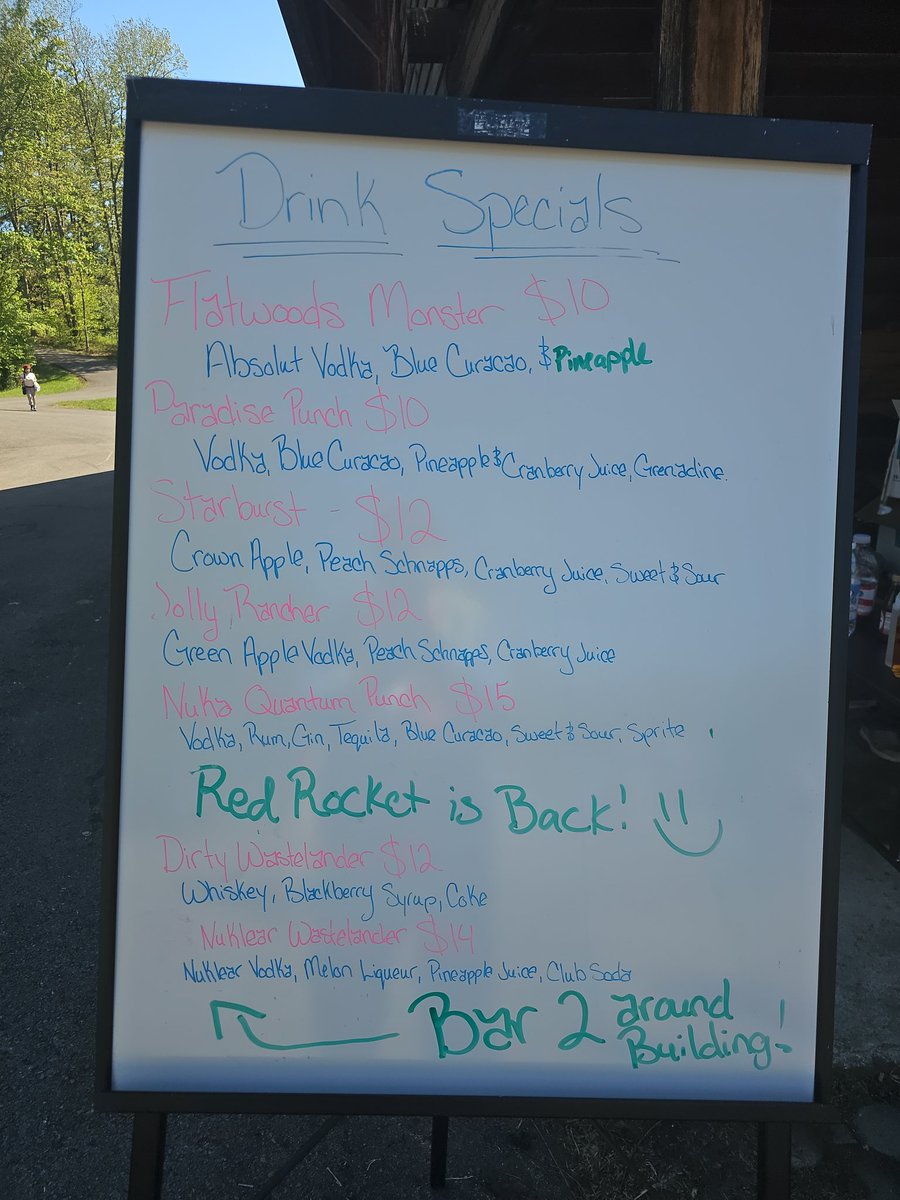 Drink Specials
Flatwoods Monster $10
Absolut Vodka, Blue Curacao, & Pineapple
Paradise Punch $10
Vodka, Blue Curacao, Pineapple & Cranberry Juice, Grenadine.
Starburst - $12
Crown Apple, Peach Schnapps, Cranberry Juice, Sweet & Sour
Jolly Rancher $12
Green Apple Vodka, Peach Schnapps, Cranberry Juice
Nuka Quantum Punch $15
Vodka, Rum, Gin, Tequila, Blue Curacao, Sweet & Sour, Sprite
Red Rocket is Back!
Dirty Wastelander $12
Whiskey, Blackberry Syrup, Coke
Nuklear Wastelander $14
Nuklear Vodka, Melon Liqueur, Pineapple Juice, Club Soda
Bar 2 around
Building!